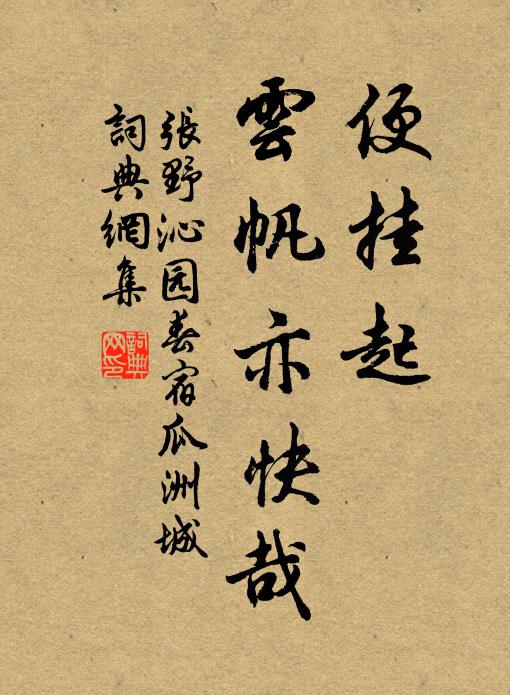 便挂起
雲帆亦快哉
張野沁园春宿瓜洲城
詞典網集
詞典网印